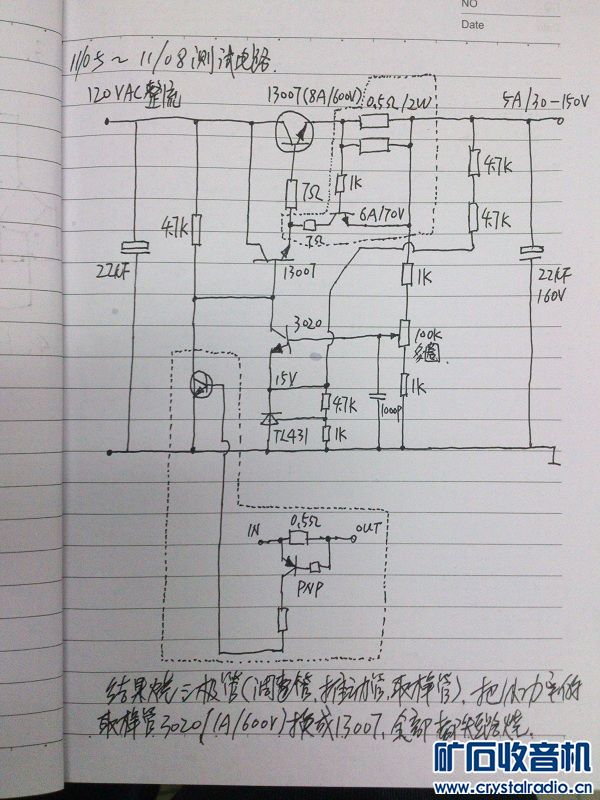 NO
Date
11/05~11/08测试电路.
120VAC整流
13007(8A/600V)
0.5Ω/2W
5A/30-150V
4.7K
7Ω
1K
6A/70V
4.7K
4.7K
7Ω
13007
22uF
1K
22uF
160V
3020
100K
多圈
15V
1000P
4.7K
1K
TL431
1K
IN
0.5Ω
OUT
PNP
结果烧三极管(调整管、推动管、取样管)、把小功率的
取样管3020(1A/600V)换成13007、全部
矿石收音机
www.crystalradio.cn